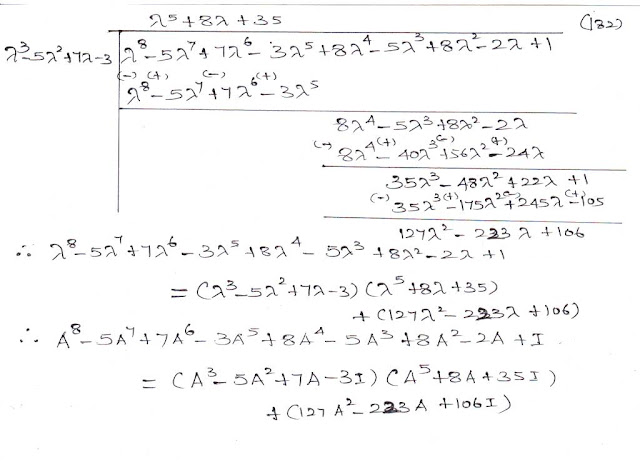 λ⁵+8λ+35 (132)
λ³-5λ²+7λ-3 | λ⁸-5λ⁷+7λ⁶-3λ⁵+8λ⁴-5λ³+8λ²-2λ+1
(-) (+) (-) (+)
λ⁸-5λ⁷+7λ⁶-3λ⁵
8λ⁴-5λ³+8λ²-2λ
(-) (+) (-) (+)
8λ⁴-40λ³+56λ²-24λ
35λ³-48λ²+22λ+1
(-) (+) (-) (+)
35λ³-175λ²+245λ-105
127λ²-223λ+106
∴ λ⁸-5λ⁷+7λ⁶-3λ⁵+8λ⁴-5λ³+8λ²-2λ+1
= (λ³-5λ²+7λ-3)(λ⁵+8λ+35)
+(127λ²-223λ+106)
∴ A⁸-5A⁷+7A⁶-3A⁵+8A⁴-5A³+8A²-2A+I
= (A³-5A²+7A-3I)(A⁵+8A+35I)
+(127A²-223A+106I)